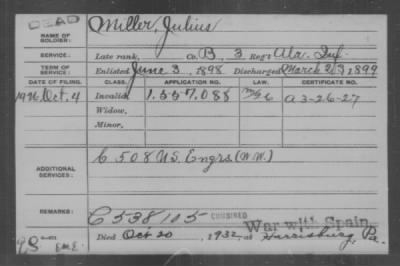 DEAD
NAME OF SOLDIER: Miller, Julius
SERVICE: Late rank, Co. B, 3 Reg't Ala. Inf.
TERM OF SERVICE: Enlisted June 3, 1898 Discharged March 20, 1899
DATE OF FILING. CLASS. APPLICATION NO. LAW. CERTIFICATE NO.
1926 Oct. 4 Invalid, 1.557.088 A 3-26-27
Widow,
Minor,
ADDITIONAL SERVICES: C 508 U.S. Engrs. (W.W.)
REMARKS: C 538105 COMBINED War with Spain
Died Oct 20, 1932, at Harrisburg, Pa.